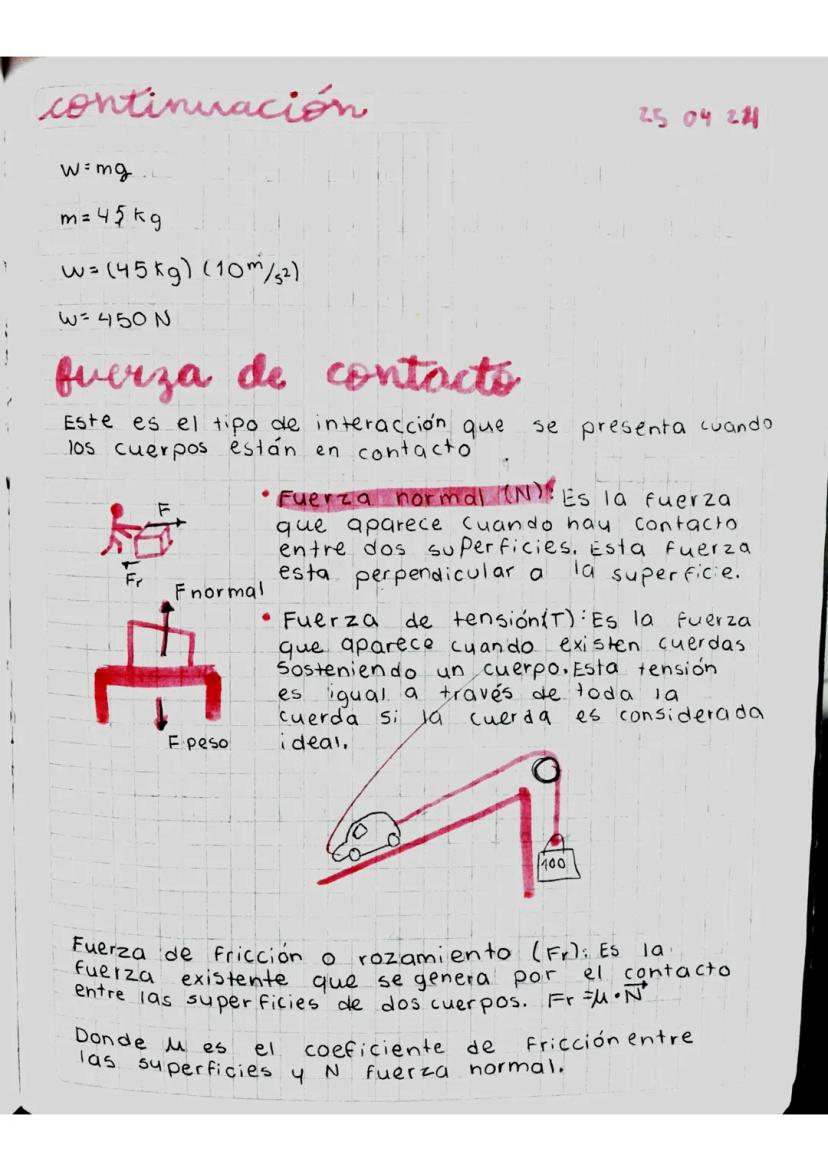 continuación
25 04 24
w=mg
m=45kg
w=(45kg) (10m/s2)
w=450N
fuerza de contacto
Este es el tipo de interacción que se presenta cuando
los cuerpos están en contacto
• Fuerza normal (N): Es la fuerza
que aparece cuando hay contacto
entre dos superficies. Esta fuerza
esta perpendicular a la superficie.
F
Fr
F normal
F peso
• Fuerza de tensión(T): Es la fuerza
que aparece cuando existen cuerdas
sosteniendo un cuerpo. Esta tensión
es igual a través de toda la
cuerda si la cuerda es considerada
ideal.
100
Fuerza de fricción o rozamiento (Fr): Es la
fuerza existente que se genera por el contacto
entre las superficies de dos cuerpos. Fr=μ•N
Donde μ es el coeficiente de fricción entre
las superficies y N fuerza normal.